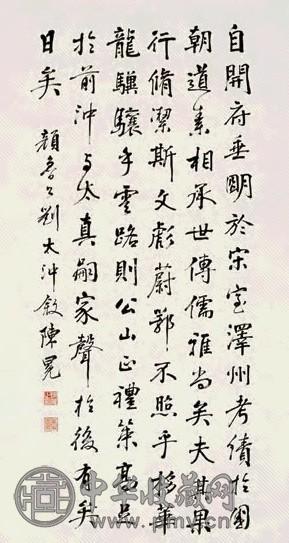 自開府垂明於宋室澤州考績於國
朝道素相承世傳儒雅尚矣夫其果
行脩潔斯文彪蔚鄂不照乎移華
龍驥驤乎雲路則公山正禮策高足
於前沖与太真嗣家聲於後有矣
日矣 顏魯公劉太沖敘 陳冕
中华收藏网